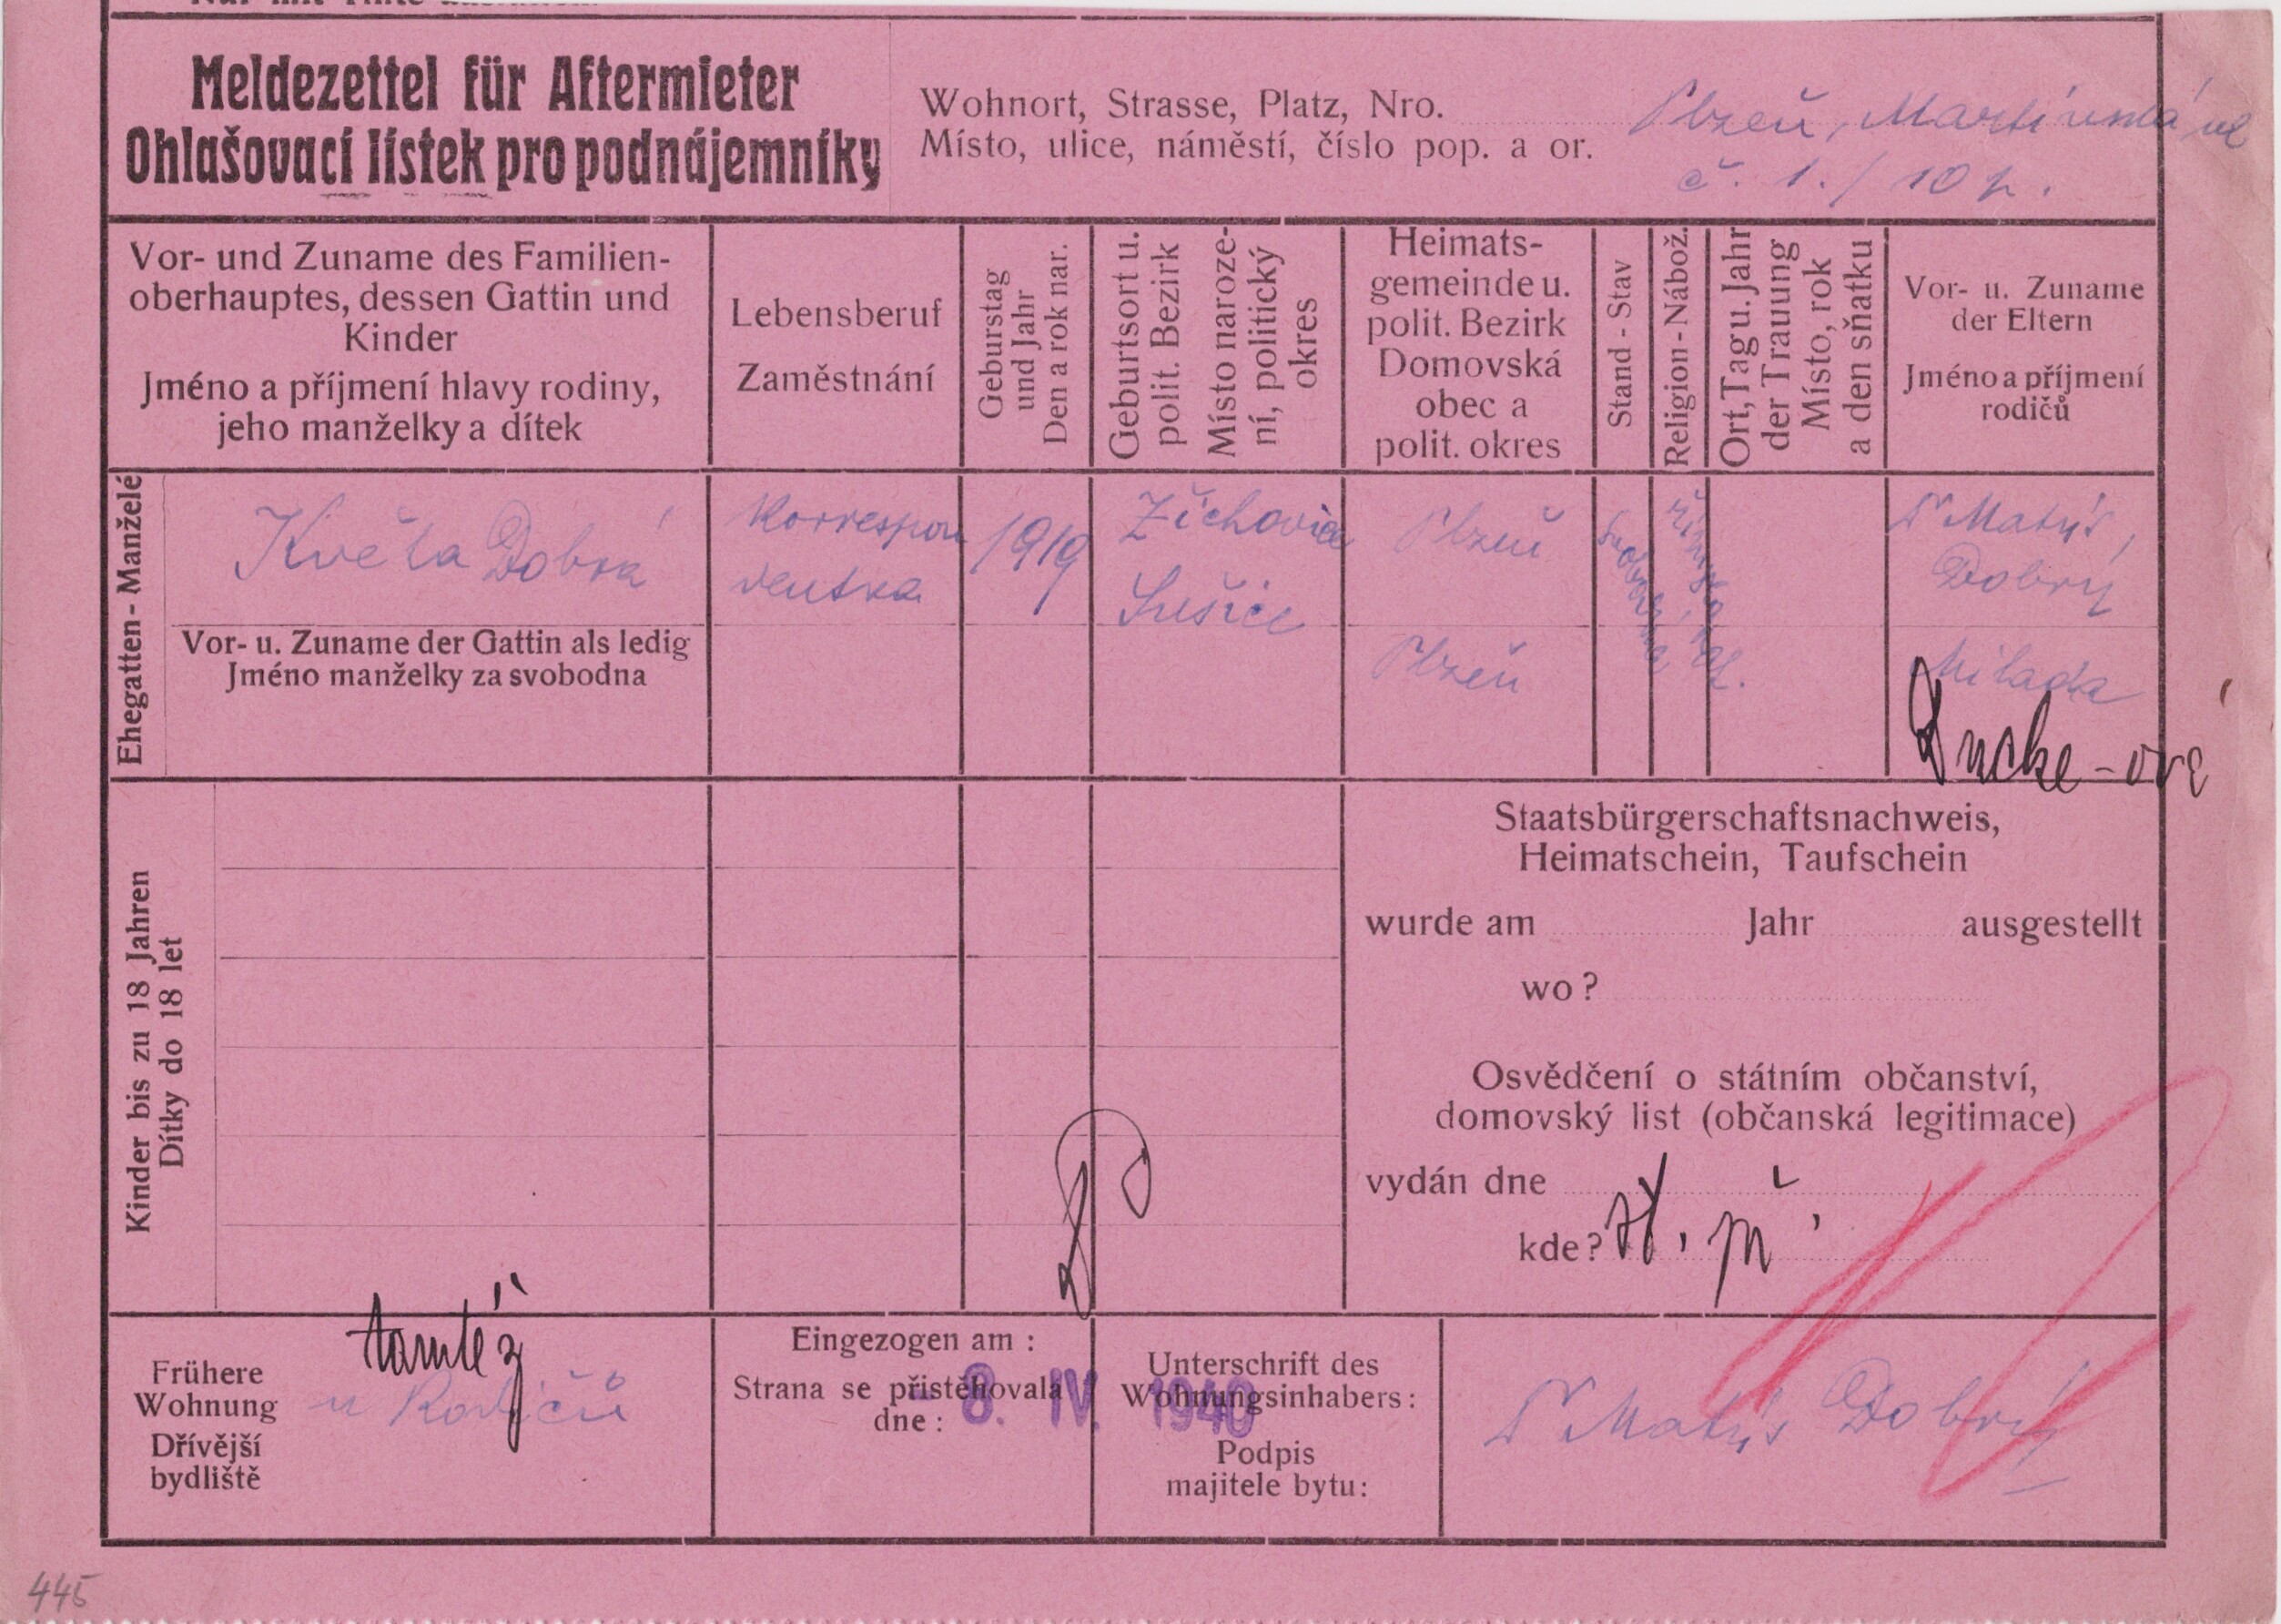 Meldezettel für Aftermieter
Ohlašovací lístek pro podnájemníky
Wohnort, Strasse, Platz, Nro.
Místo, ulice, náměstí, číslo pop. a or.
Plzeň, Martinská ul
č. 1./10 p.
Vor- und Zuname des Familien-
oberhauptes, dessen Gattin und
Kinder
Jméno a příjmení hlavy rodiny,
jeho manželky a dítek
Lebensberuf
Zaměstnání
Geburstag
und Jahr
Den a rok nar.
Geburtsort u.
polit. Bezirk
Místo naroze-
ní, politický
okres
Heimats-
gemeinde u.
polit. Bezirk
Domovská
obec a
polit. okres
Stand - Stav
Religion - Nábož.
Ort, Tag u. Jahr
der Trauung
Místo, rok
a den sňatku
Vor- u. Zuname
der Eltern
Jméno a příjmení
rodičů
Ehegatten - Manželé
Květa Dobrá
Korrespon
dentka
1919
Žichovice
Sušice
Plzeň
Plzeň
svobodná
římsko kat.
Dr Matýs
Dobrý
Milada
Vor- u. Zuname der Gattin als ledig
Jméno manželky za svobodna
Kinder bis zu 18 Jahren
Dítky do 18 let
Staatsbürgerschaftsnachweis,
Heimatschein, Taufschein
wurde am Jahr ausgestellt
wo?
Osvědčení o státním občanství,
domovský list (občanská legitimace)
vydán dne
kde?
Frühere
Wohnung
Dřívější
bydliště
tamtéž
u Rodičů
Eingezogen am :
Strana se přistěhovala
dne :
- 8. IV. 1940
Unterschrift des
Wohnungsinhabers :
Podpis
majitele bytu :
Dr Matýs Dobrý
445